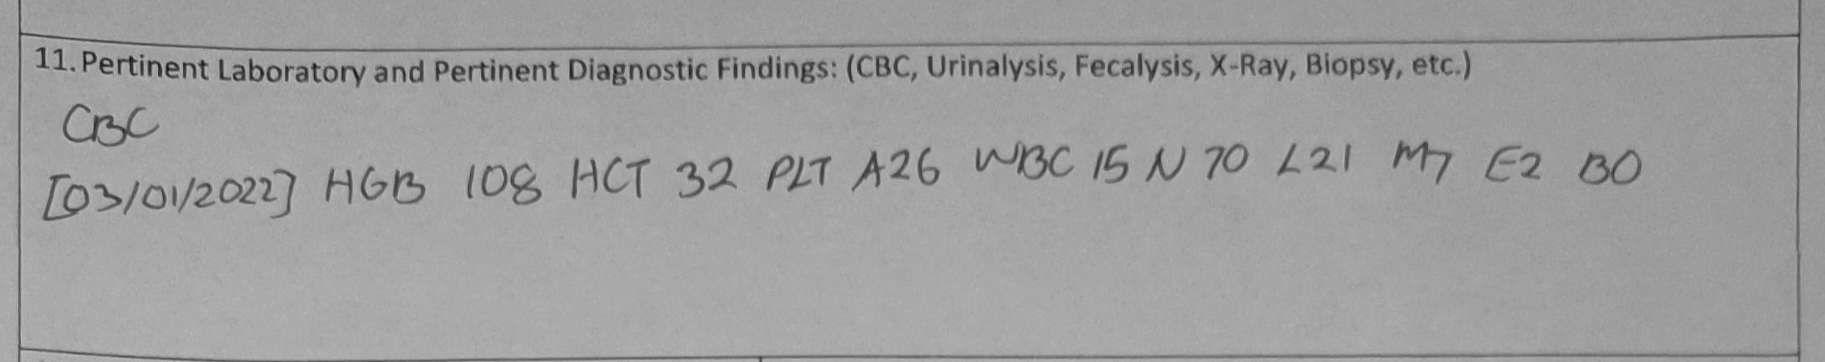 11. Pertinent Laboratory and Pertinent Diagnostic Findings: (CBC, Urinalysis, Fecalysis, X-Ray, Biopsy, etc.)
CBC
[03/01/2022] HGB 108 HCT 32 PLT A26 WBC 15 N 70 L21 M7 E2 B0